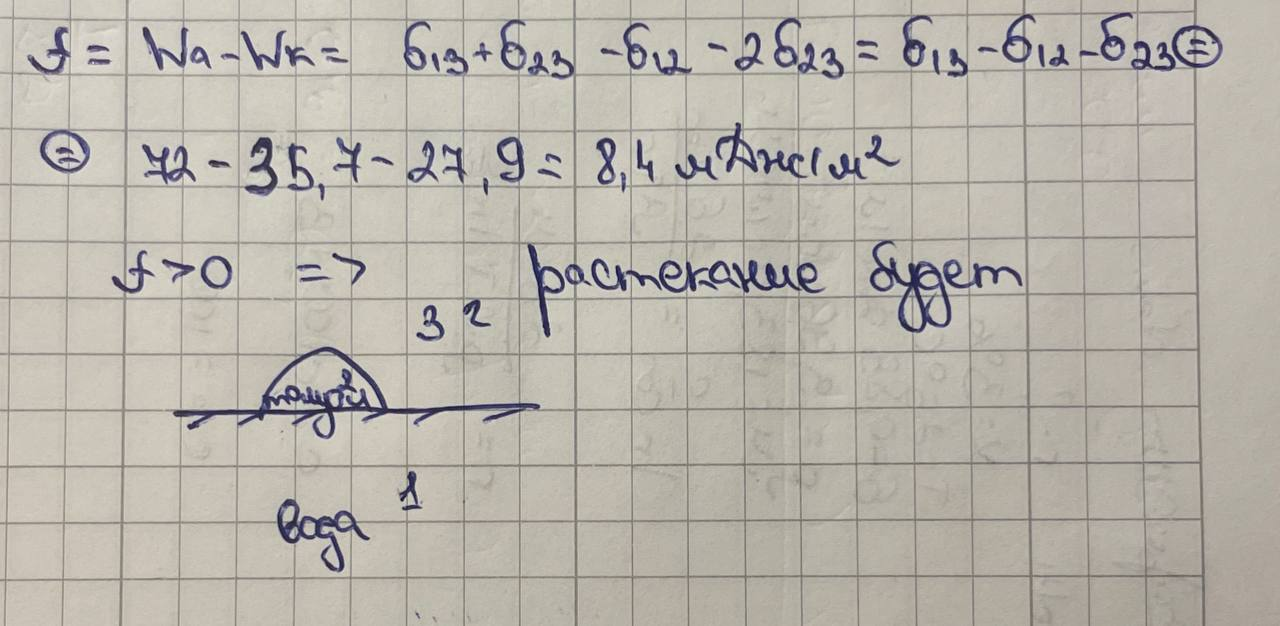 f = Wa - Wк = σ13 + σ23 - σ12 - 2σ23 = σ13 - σ12 - σ23 ⊜
⊜ 72 - 35,7 - 27,9 = 8,4 мДж/м²
f > 0 => растекание будет
3 г
толуол 2
вода 1